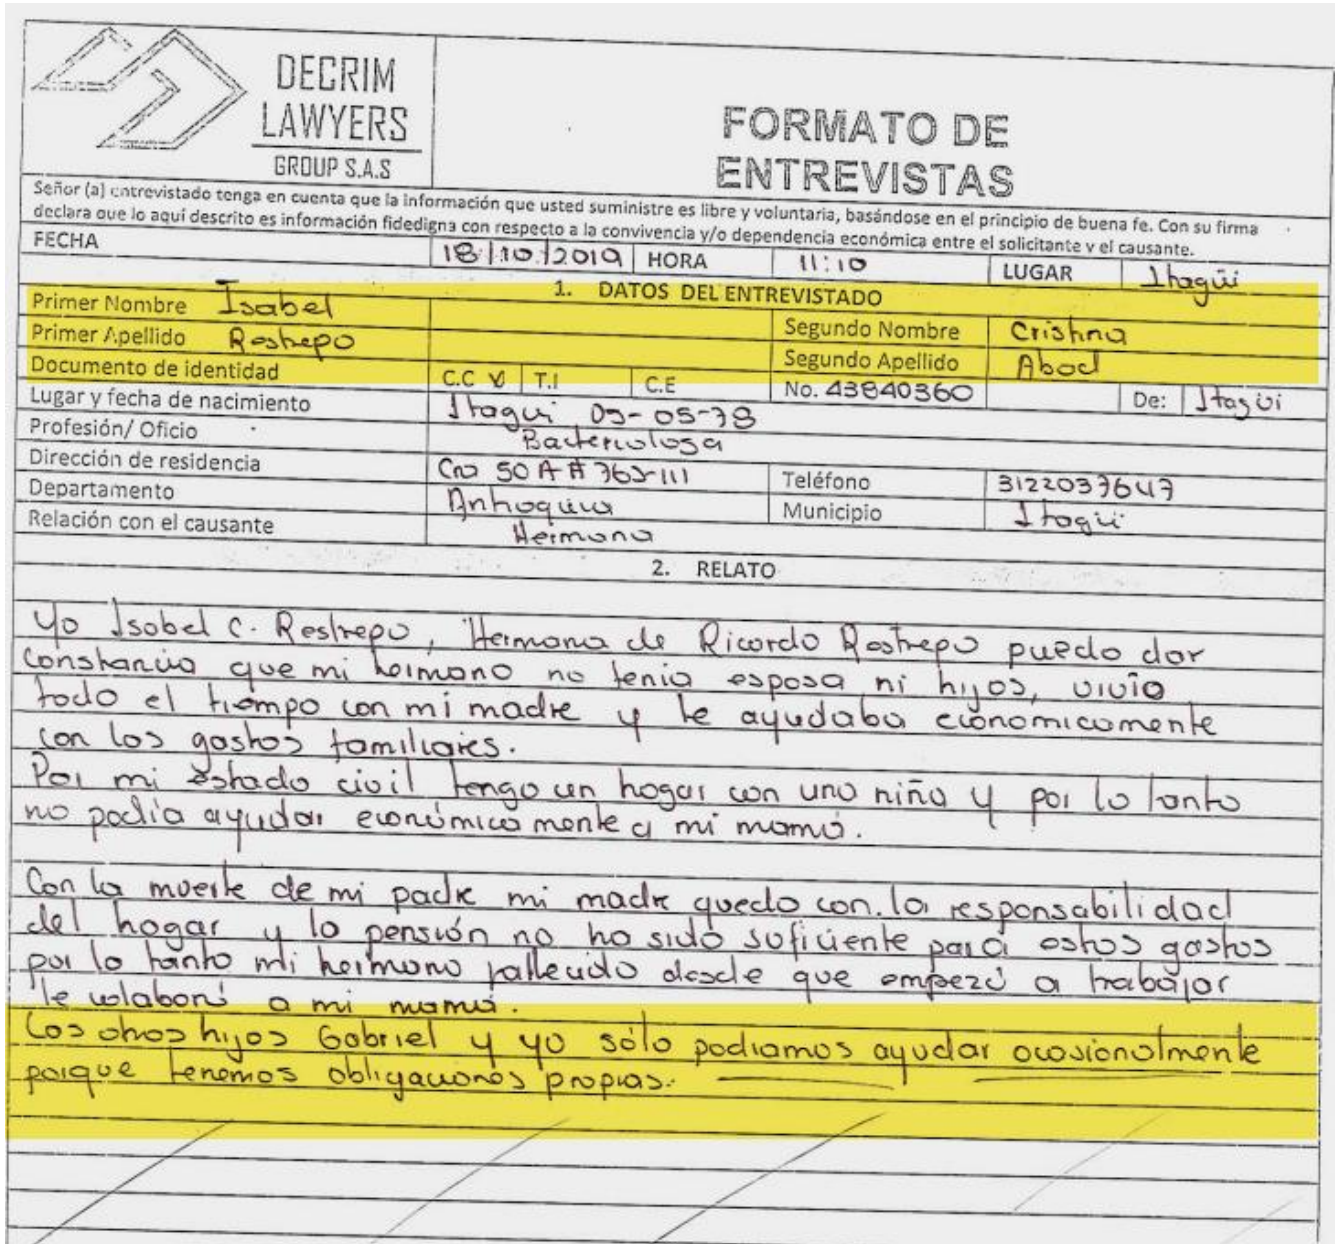 DECRIM
LAWYERS
GROUP S.A.S
FORMATO DE
ENTREVISTAS
Señor (a) entrevistado tenga en cuenta que la información que usted suministre es libre y voluntaria, basándose en el principio de buena fe. Con su firma
declara que lo aquí descrito es información fidedigna con respecto a la convivencia y/o dependencia económica entre el solicitante y el causante.
FECHA 18/10/2019 HORA 11:10 LUGAR Itagüi
1. DATOS DEL ENTREVISTADO
Primer Nombre Isabel Segundo Nombre Cristina
Primer Apellido Restrepo Segundo Apellido Abad
Documento de identidad C.C T.I C.E No. 43840360 De: Itagüi
Lugar y fecha de nacimiento Itagui 09-05-78
Profesión/ Oficio Bacteriologa
Dirección de residencia Cra 50 A # 76S-111 Teléfono 3122037647
Departamento Antioquia Municipio Itagüi
Relación con el causante Hermana
2. RELATO
Yo Isabel C. Restrepo, Hermana de Ricardo Restrepo puedo dar
constancia que mi hermano no tenia esposa ni hijos, vivio
todo el tiempo con mi madre y le ayudaba economicamente
con los gastos familiares.
Por mi estado civil tengo un hogar con una niña y por lo tanto
no podia ayudar económicamente a mi mamá.
Con la muerte de mi padre mi madre quedo con la responsabilidad
del hogar y la pensión no ha sido suficiente para estos gastos
por lo tanto mi hermano fallecido desde que empezó a trabajar
le colaboró a mi mamá.
Los otros hijos Gabriel y yo sólo podiamos ayudar ocasionalmente
porque tenemos obligaciones propias.